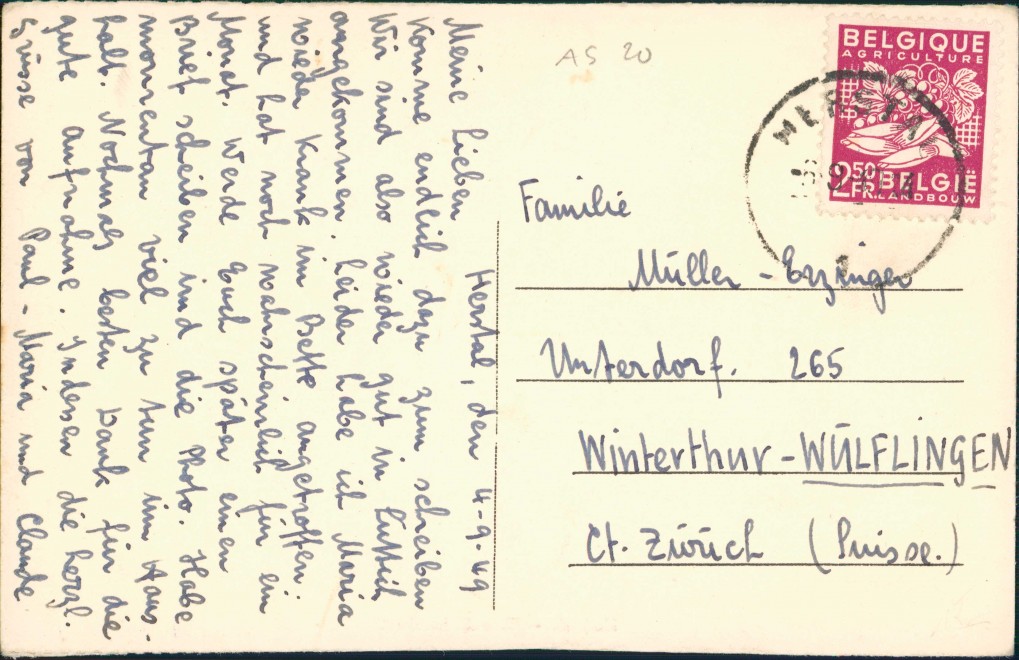 Herstal, den 4-9.49
Meine Lieben
Komme endlich dazu zum scheiben
Wir sind also wieder gut in Lüttich
angekommen. Leider habe ich Maria
wieder krank im Bette angetroffen:
und hat noch wahrscheinlich für ein
Monat. Werde Euch später einen
Brief scheiben und die Photo. Habe
momentan viel zu tun im Haus-
halt. Nochmals besten Dank für die
gute aufnahme. Indessen die herzl.
Grüsse von Paul-Maria und Claude
AS 20
BELGIQUE
AGRICULTURE
2.50
FR.
BELGIË
LANDBOUW
HERSTAL
Familie
Müller-Erzinger
Unterdorf. 265
Winterthur-WÜLFLINGEN
Ct. Zürich (Suisse.)